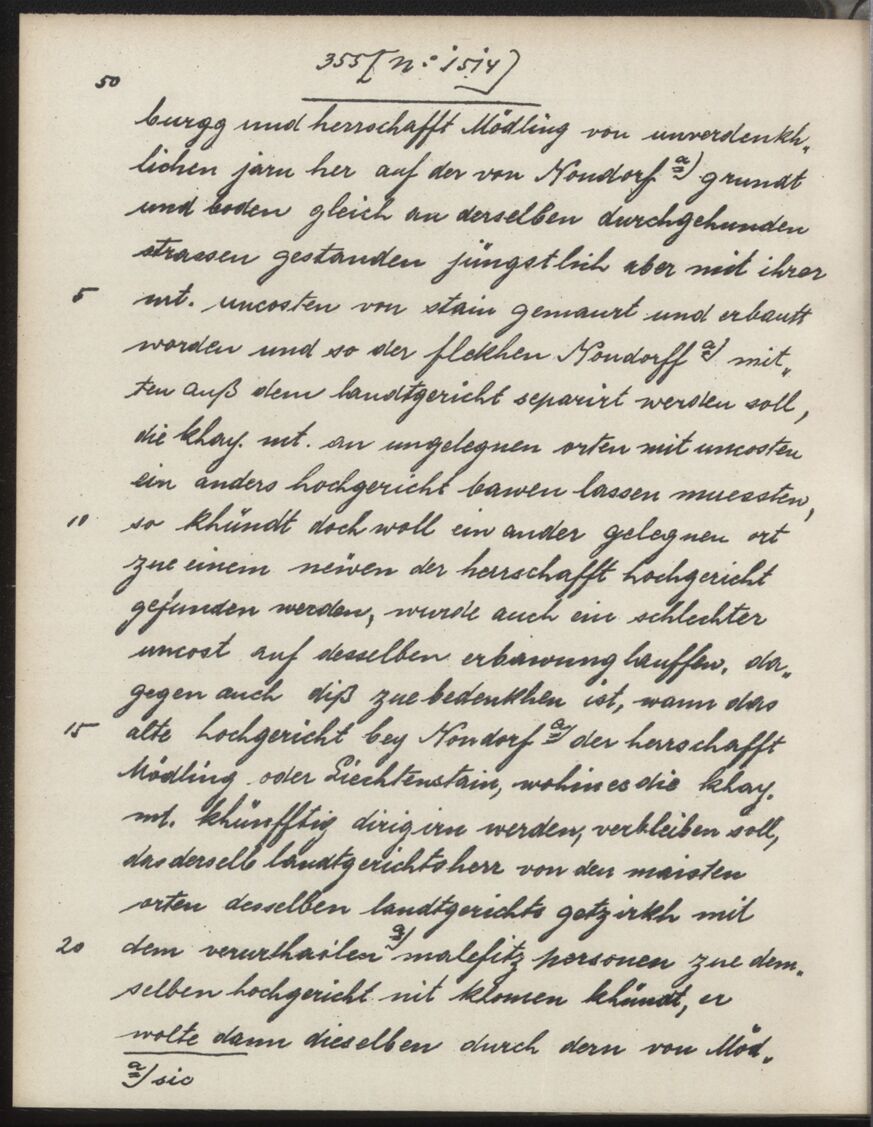 355 [n: 1514]
50
burgg und herrschafft Mödling von unverdenkh„
lichen jarn her auf der von Nondorf a) grundt
und boden gleich an derselben durchgehunden
strassen gestanden jüngstlich aber mit ihrer
5 mt. uncosten von stain gemaurt und erbautt
worden und so der flekhen Nondorff a) mit„
ten auß dem landtgericht separirt werden soll,
die khay. mt. an ungelegnen orten mit uncosten
ein anders hochgericht bawen lassen muessten,
10 so khündt doch woll ein ander gelegnen ort
zue einem neüen der herrschafft hochgericht
gefunden werden, wurde auch ein schlechter
uncost auf desselben erbawung lauffen, da„
gegen auch diß zue bedenkhen ist, wann das
15 alte hochgericht bey Nondorf a) der herrschafft
Mödling oder Liechtenstain, wohin es die khay.
mt. khünfftig dirigirn werden, verbleiben soll,
das derselb landtgerichtsherr von den maisten
orten desselben landtgerichts getzirkh mit
20 dem verurthailen a) malefitz personen zue dem„
selben hochgericht nit khomen khündt, er
wolte dann dieselben durch dern von Möd„
a) sic